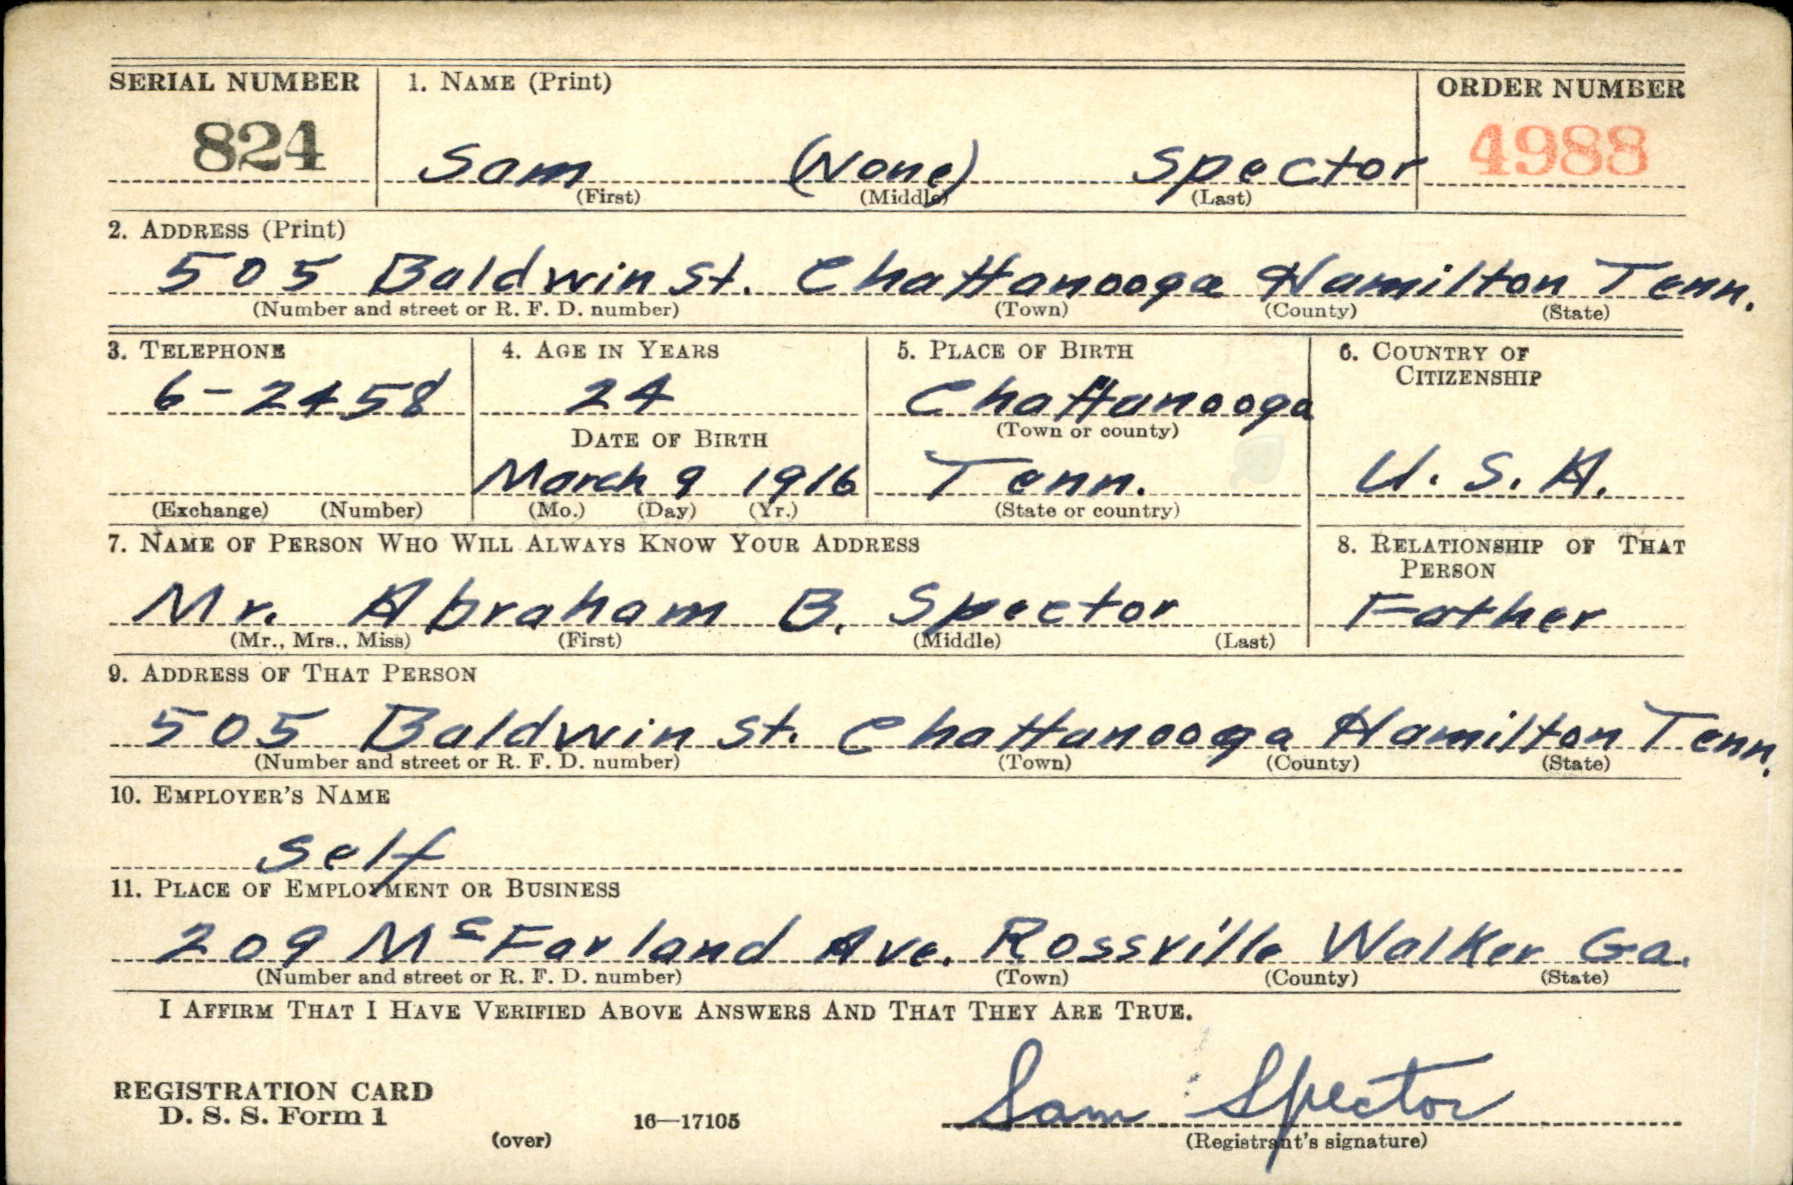 SERIAL NUMBER 1. NAME (Print) ORDER NUMBER
824 Sam (None) Spector 4988
(First) (Middle) (Last)
2. ADDRESS (Print)
505 Baldwin St. Chattanooga Hamilton Tenn.
(Number and street or R. F. D. number) (Town) (County) (State)
3. TELEPHONE 4. AGE IN YEARS 5. PLACE OF BIRTH 6. COUNTRY OF
CITIZENSHIP
6-2458 24 Chattanooga
(Town or county)
DATE OF BIRTH
March 9 1916 Tenn. U. S. A.
(Exchange) (Number) (Mo.) (Day) (Yr.) (State or country)
7. NAME OF PERSON WHO WILL ALWAYS KNOW YOUR ADDRESS 8. RELATIONSHIP OF THAT
PERSON
Mr. Abraham B. Spector Father
(Mr., Mrs., Miss) (First) (Middle) (Last)
9. ADDRESS OF THAT PERSON
505 Baldwin St. Chattanooga Hamilton Tenn.
(Number and street or R. F. D. number) (Town) (County) (State)
10. EMPLOYER'S NAME
Self
11. PLACE OF EMPLOYMENT OR BUSINESS
209 McFarland Ave. Rossville Walker Ga.
(Number and street or R. F. D. number) (Town) (County) (State)
I AFFIRM THAT I HAVE VERIFIED ABOVE ANSWERS AND THAT THEY ARE TRUE.
REGISTRATION CARD
D. S. S. Form 1 16—17105 Sam Spector
(over) (Registrant's signature)